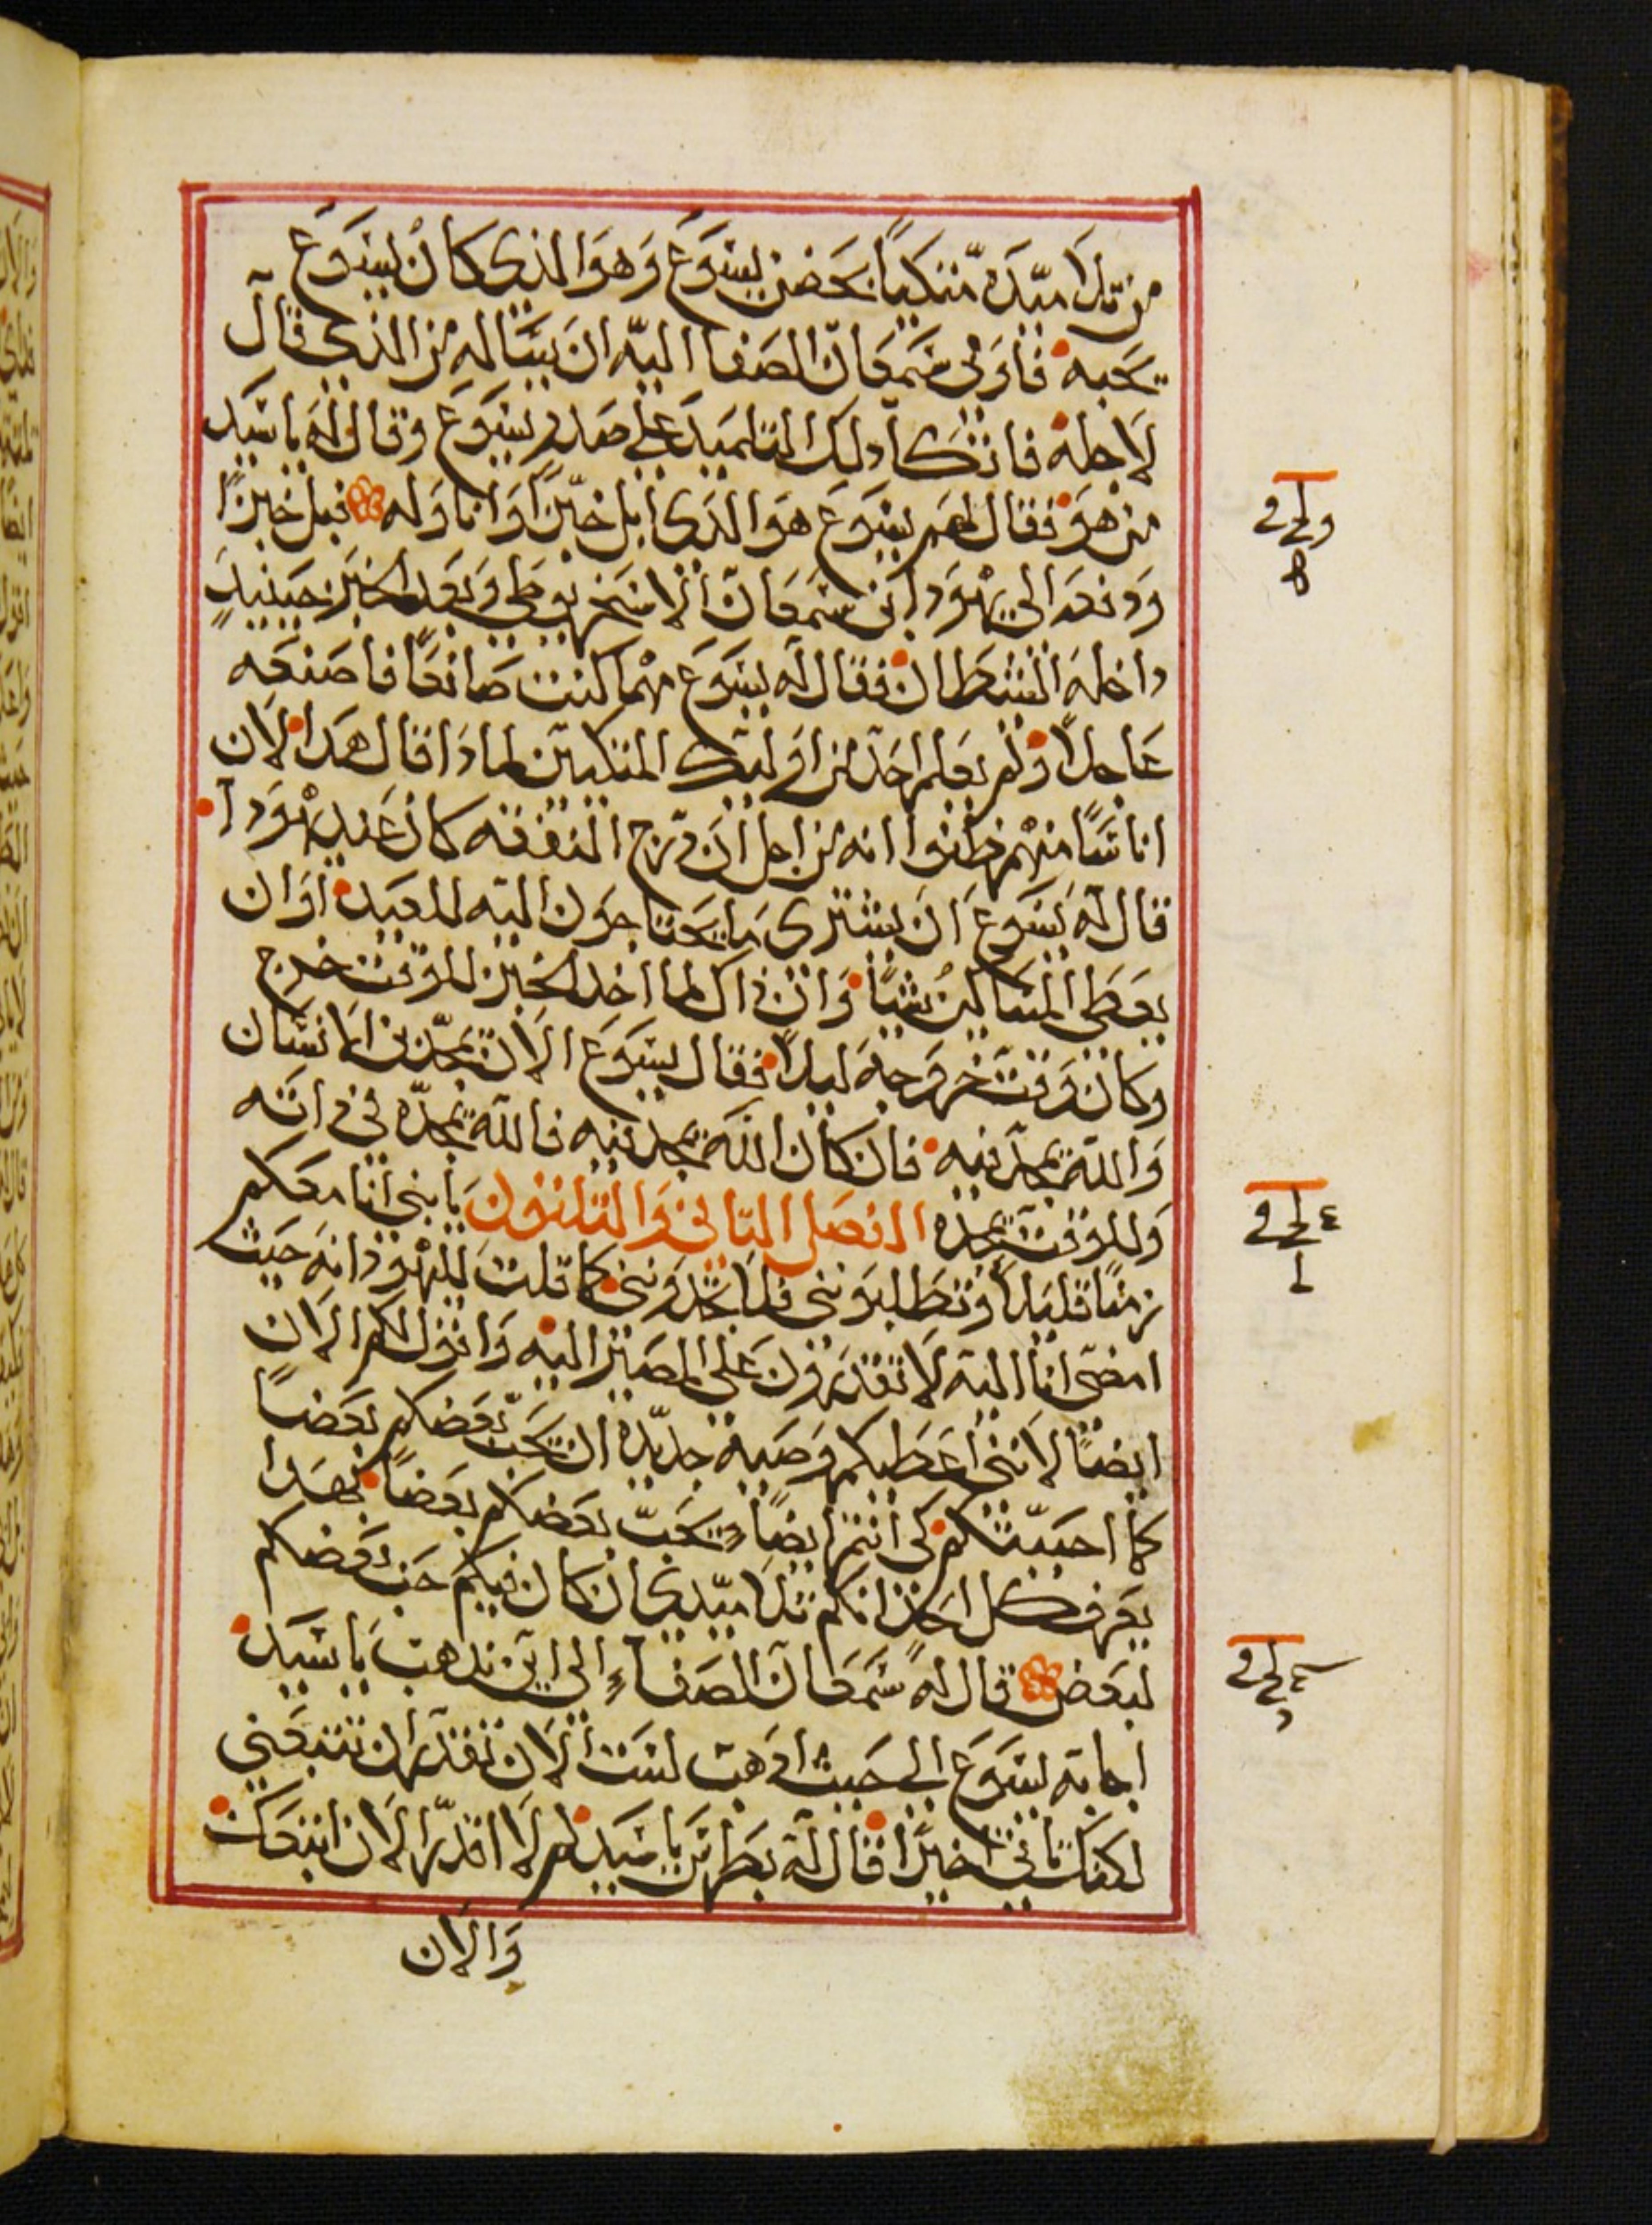 من تلاميده متكياً بحضن يسوع وهو الدي كان يسوع
يحبه فاومى شمعان الصفا اليه ان يساله من الدي قال
لاجله فاتكا دلك التلميد على صدر يسوع وقال له يا سيد
من هو فقال لهم يسوع هو الدي ابل خبزاً وانا وله فبل خبزاً
ودفعه الى يهودا ابن سمعان الاسخريوطي وبعد الخبز حينيدٍ
داخله الشيطان فقال له يسوع مهما كنت صانعاً فاصنعه
عاجلاً ولم يعلم احد من اوليك المتكيين لمادا قال هدا لان
اناساً منهم ظنوا انه من اجل ان درج النفقه كان عند يهودا
قال له يسوع ان يشتري ما يحتاجون اليه للعيد او ان
يعطي المساكين شياً وان داك لما اخد الخبز للوقت خرج
وكان وقت خروجه ليلاً فقال يسوع الان تمجد ابن الانسان
والله تمجد فيه فان كان الله تمجد فيه فالله يمجده في داته
وللوقت يمجده الفصل التاني والتلتون يا بني انا معكم
زمناً قليلاً وتطلبونني فلا تجدونني كما قلت لليهود انه حيث
امضي انا اليه لا تقدرون على المصير اليه واقول لكم الان
ايضاً لانني اعطيكم وصية جديده ان يحب بعضكم بعضاً
كما احببتكم كي انتم ايضاً يحب بعضكم بعضاً بهدا
يعرف كل احد انكم تلاميدي ان كان فيكم حب بعضكم
لبعض قال له شمعان الصفاء الى اين تدهب يا سيد
اجابه يسوع الى حيث ادهب لست الان تقدر ان تتبعني
لكنك تاتي اخيراً قال له بطرس يا سيد لم لا اقدر الان اتبعك
والان